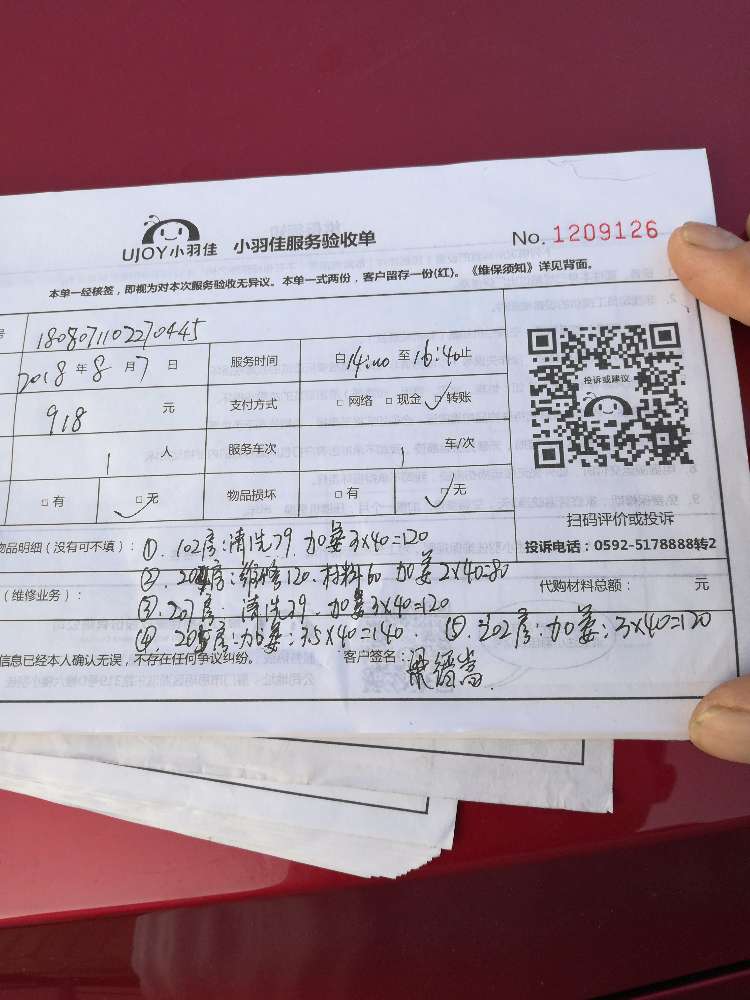 UJOY小羽佳 小羽佳服务验收单 No. 1209126
本单一经核签，即视为对本次服务验收无异议。本单一式两份，客户留存一份(红)。《维保须知》详见背面。
号 1808071102270445
2018 年 8 月 7 日 服务时间 自 14:00 至 16:40 止
918 元 支付方式 □ 网络 □ 现金 ✓ 转账
1 人 服务车次 1 车/次
□ 有 □ 无 ✓ 物品损坏 □ 有 □ 无 ✓
投诉或建议
扫码评价或投诉
投诉电话：0592-5178888转2
物品明细（没有可不填）：①. 102房：清洗79 加姜3×40=120
②. 房：维修120. 材料60 加姜2×40=80
代购材料总额： 元
（维修业务）：③. 207房：清洗79. 加姜3×40=120
④. 房：加姜：3.5×40=140. ⑤. 302房：加姜：3×40=120
信息已经本人确认无误，不存在任何争议纠纷。 客户签名：